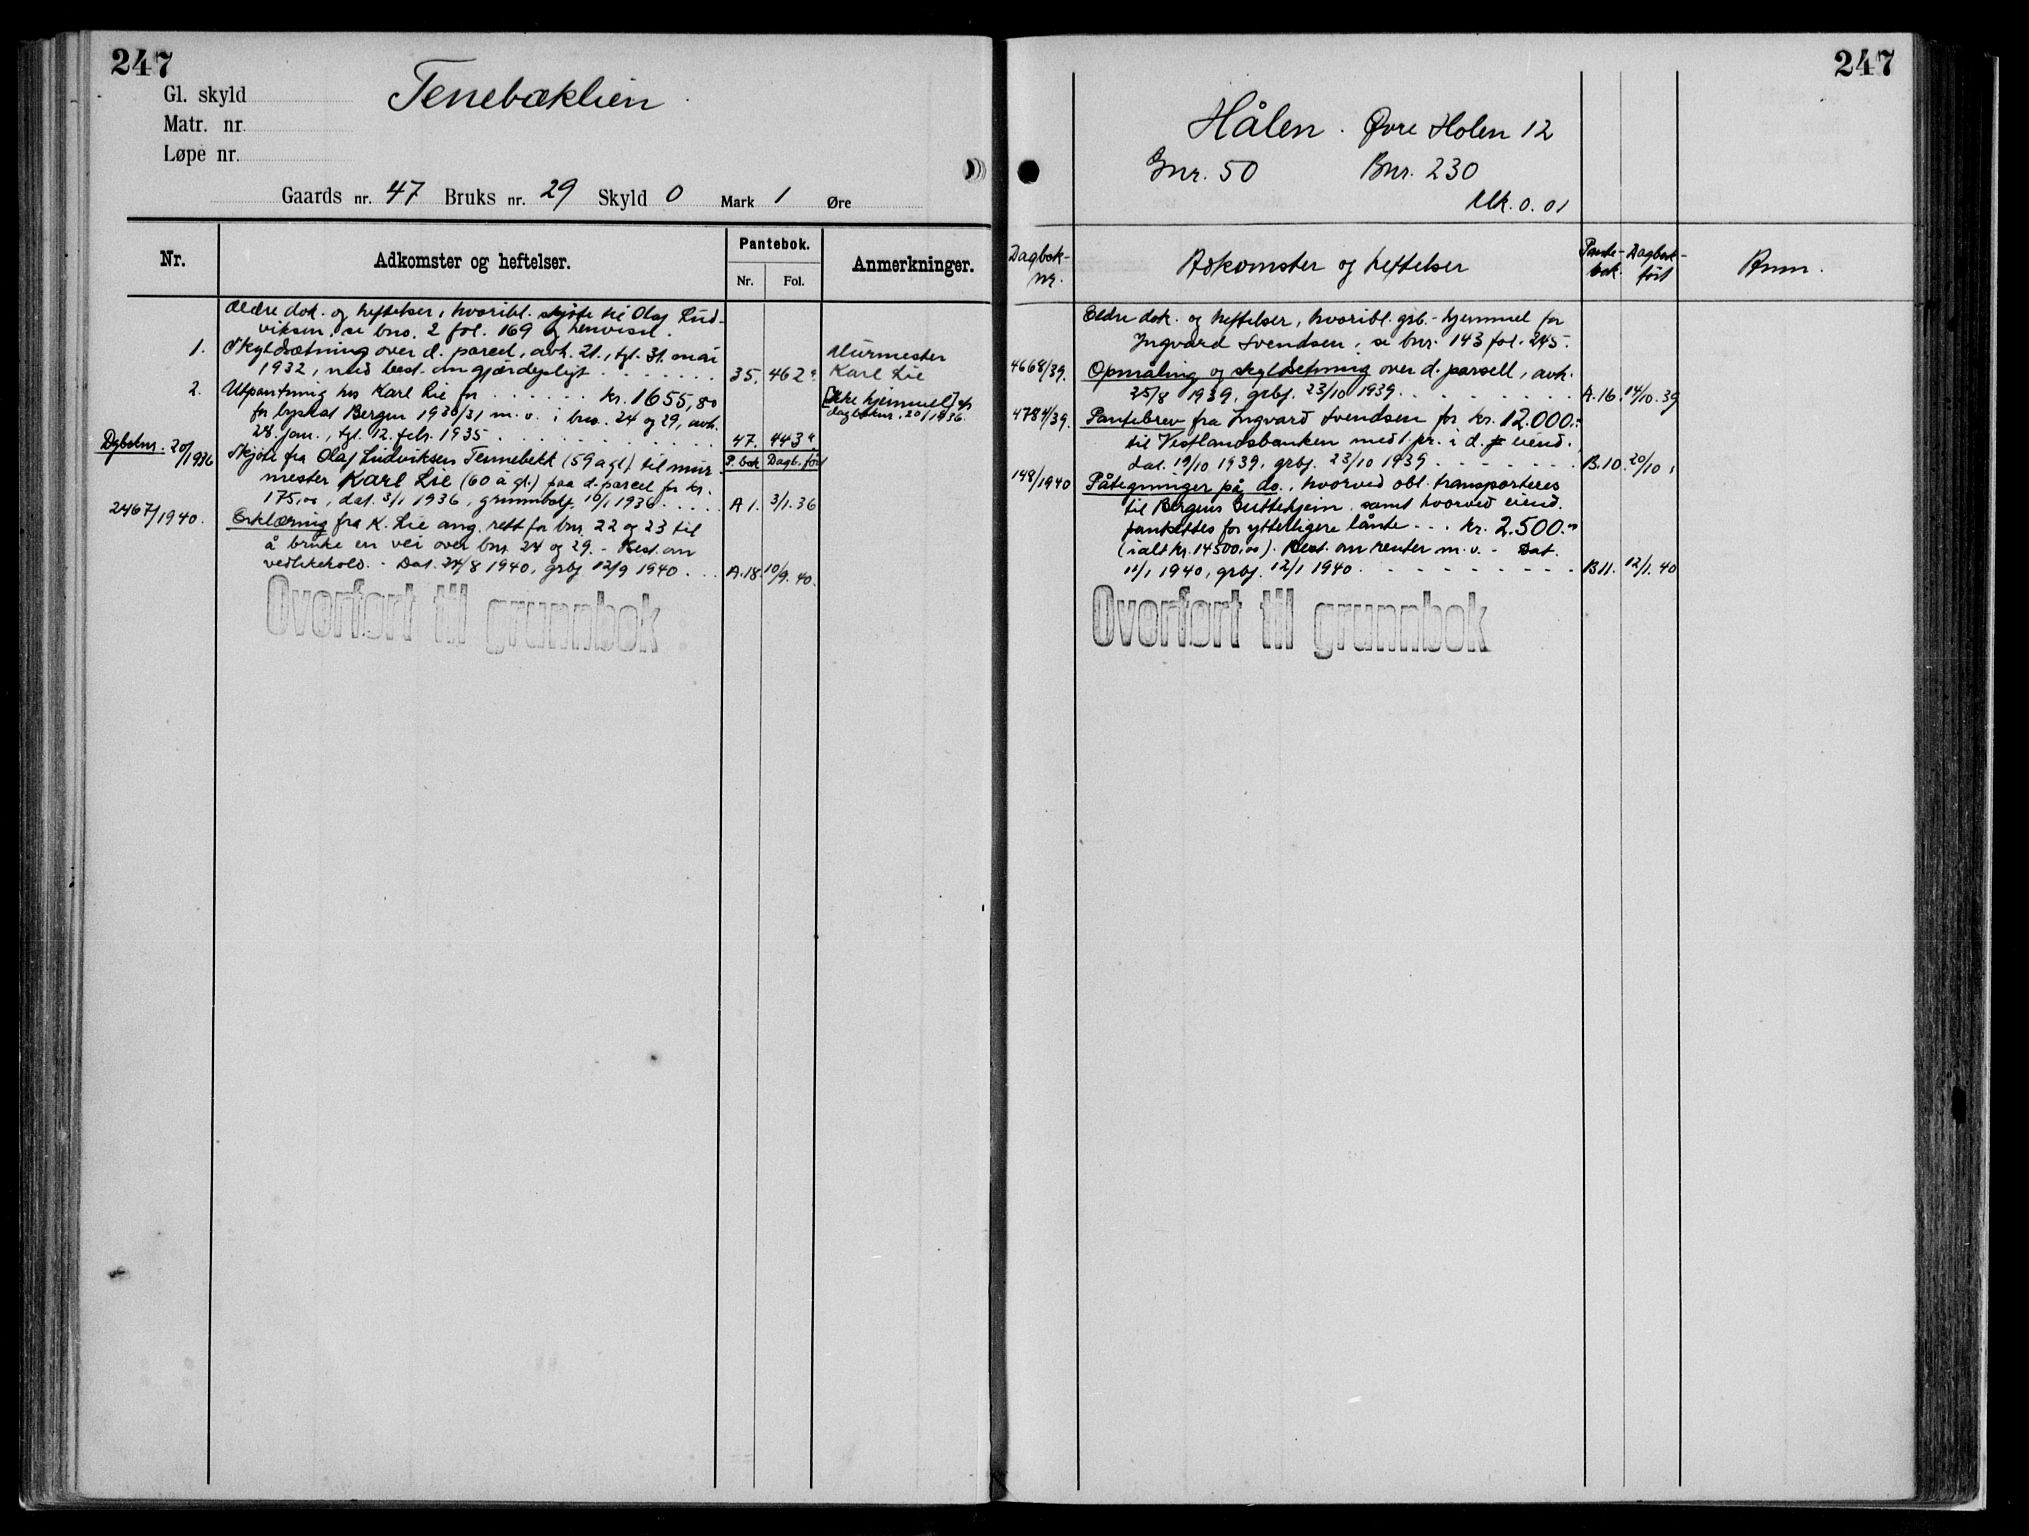 247
Gl. skyld
Tenebæklien
Matr. nr.
Løpe nr.
Gaards nr. 47 Bruks nr. 29 Skyld 0 Mark 1 Øre
Nr.
Adkomster og heftelser.
Pantebok.
Nr. Fol.
Anmerkninger.
Ældre dok. og heftelser, hvoribl. skjøte til Olaf Lud-
viksen, se bno. 2 fol. 169 og henvisn.
1. Skyldsætning over d. parcel, avh. 21., tgl. 31. mai
1932, med best. om gjærdepligt . . . . . . . 35. 462
Murmester
Karl Lie
[Ikke hjemmel] cfr.
dagboknr. 20/1936.
2. Utpantning hos Karl Lie for . . . . . . kr. 1655,80
for byskat Bergen 1930/31 m. v. i bno. 24 og 29, avh.
28. jan., tgl. 12. febr. 1935 . . . . . . . . . . 47. 443
Dgboknr. 20/1936
P. bok Dagb. ført
Skjøte fra Olaf Ludviksen Tennebekk (59 a gl.) til mur-
mester Karl Lie (60 a gl.) paa d. parcel for kr.
175,00, dat. 3/1 1936, grunnbokf. 10/1 1936 . . . . . A 1. 3/1. 36
2467/1940.
Erklæring fra K. Lie ang. rett for bnr. 22 og 23 til
å bruke en vei over bnr. 24 og 29. - Best. om
vedlikehold. - Dat. 24/8 1940, grbf. 12/9 1940 . . . A.18. 10/9. 40.
Overført til grunnbok
247
Hålen. Øvre Holen 12
Gnr. 50 Bnr. 230
Mk. 0.01
Dagbok-
nr.
Adkomster og heftelser
Pante-
bok.
Dagbok-
ført
Anm.
Eldre dok. og heftelser, hvoribl. grb.-hjemmel for
Ingvard Svendsen, se bnr. 143 fol. 245.
4668/39. Opmåling og skyldsetning over d. parsell, avh.
25/8 1939, grbf. 23/10 1939 . . . . . . . . A.16. 14/10. 39
4784/39. Pantebrev fra Ingvard Svendsen for kr. 12.000.-
til Vestlandsbanken med 1. pr. i d. eiend.
dat. 19/10 1939, grbf. 23/10 1939 . . . . . . . B.10. 20/10
148/1940 Påtegninger på do., hvorved obl. transporteres
til Bergens Guttehjem samt hvorved eiend.
pantsettes for ytterligere lånte . . . kr. 2.500.-
(ialt kr. 14500,00). Best. om renter m. v. - Dat.
11/1 1940, grbf. 12/1 1940 . . . . . . . . B 11. 12/1. 40
Overført til grunnbok